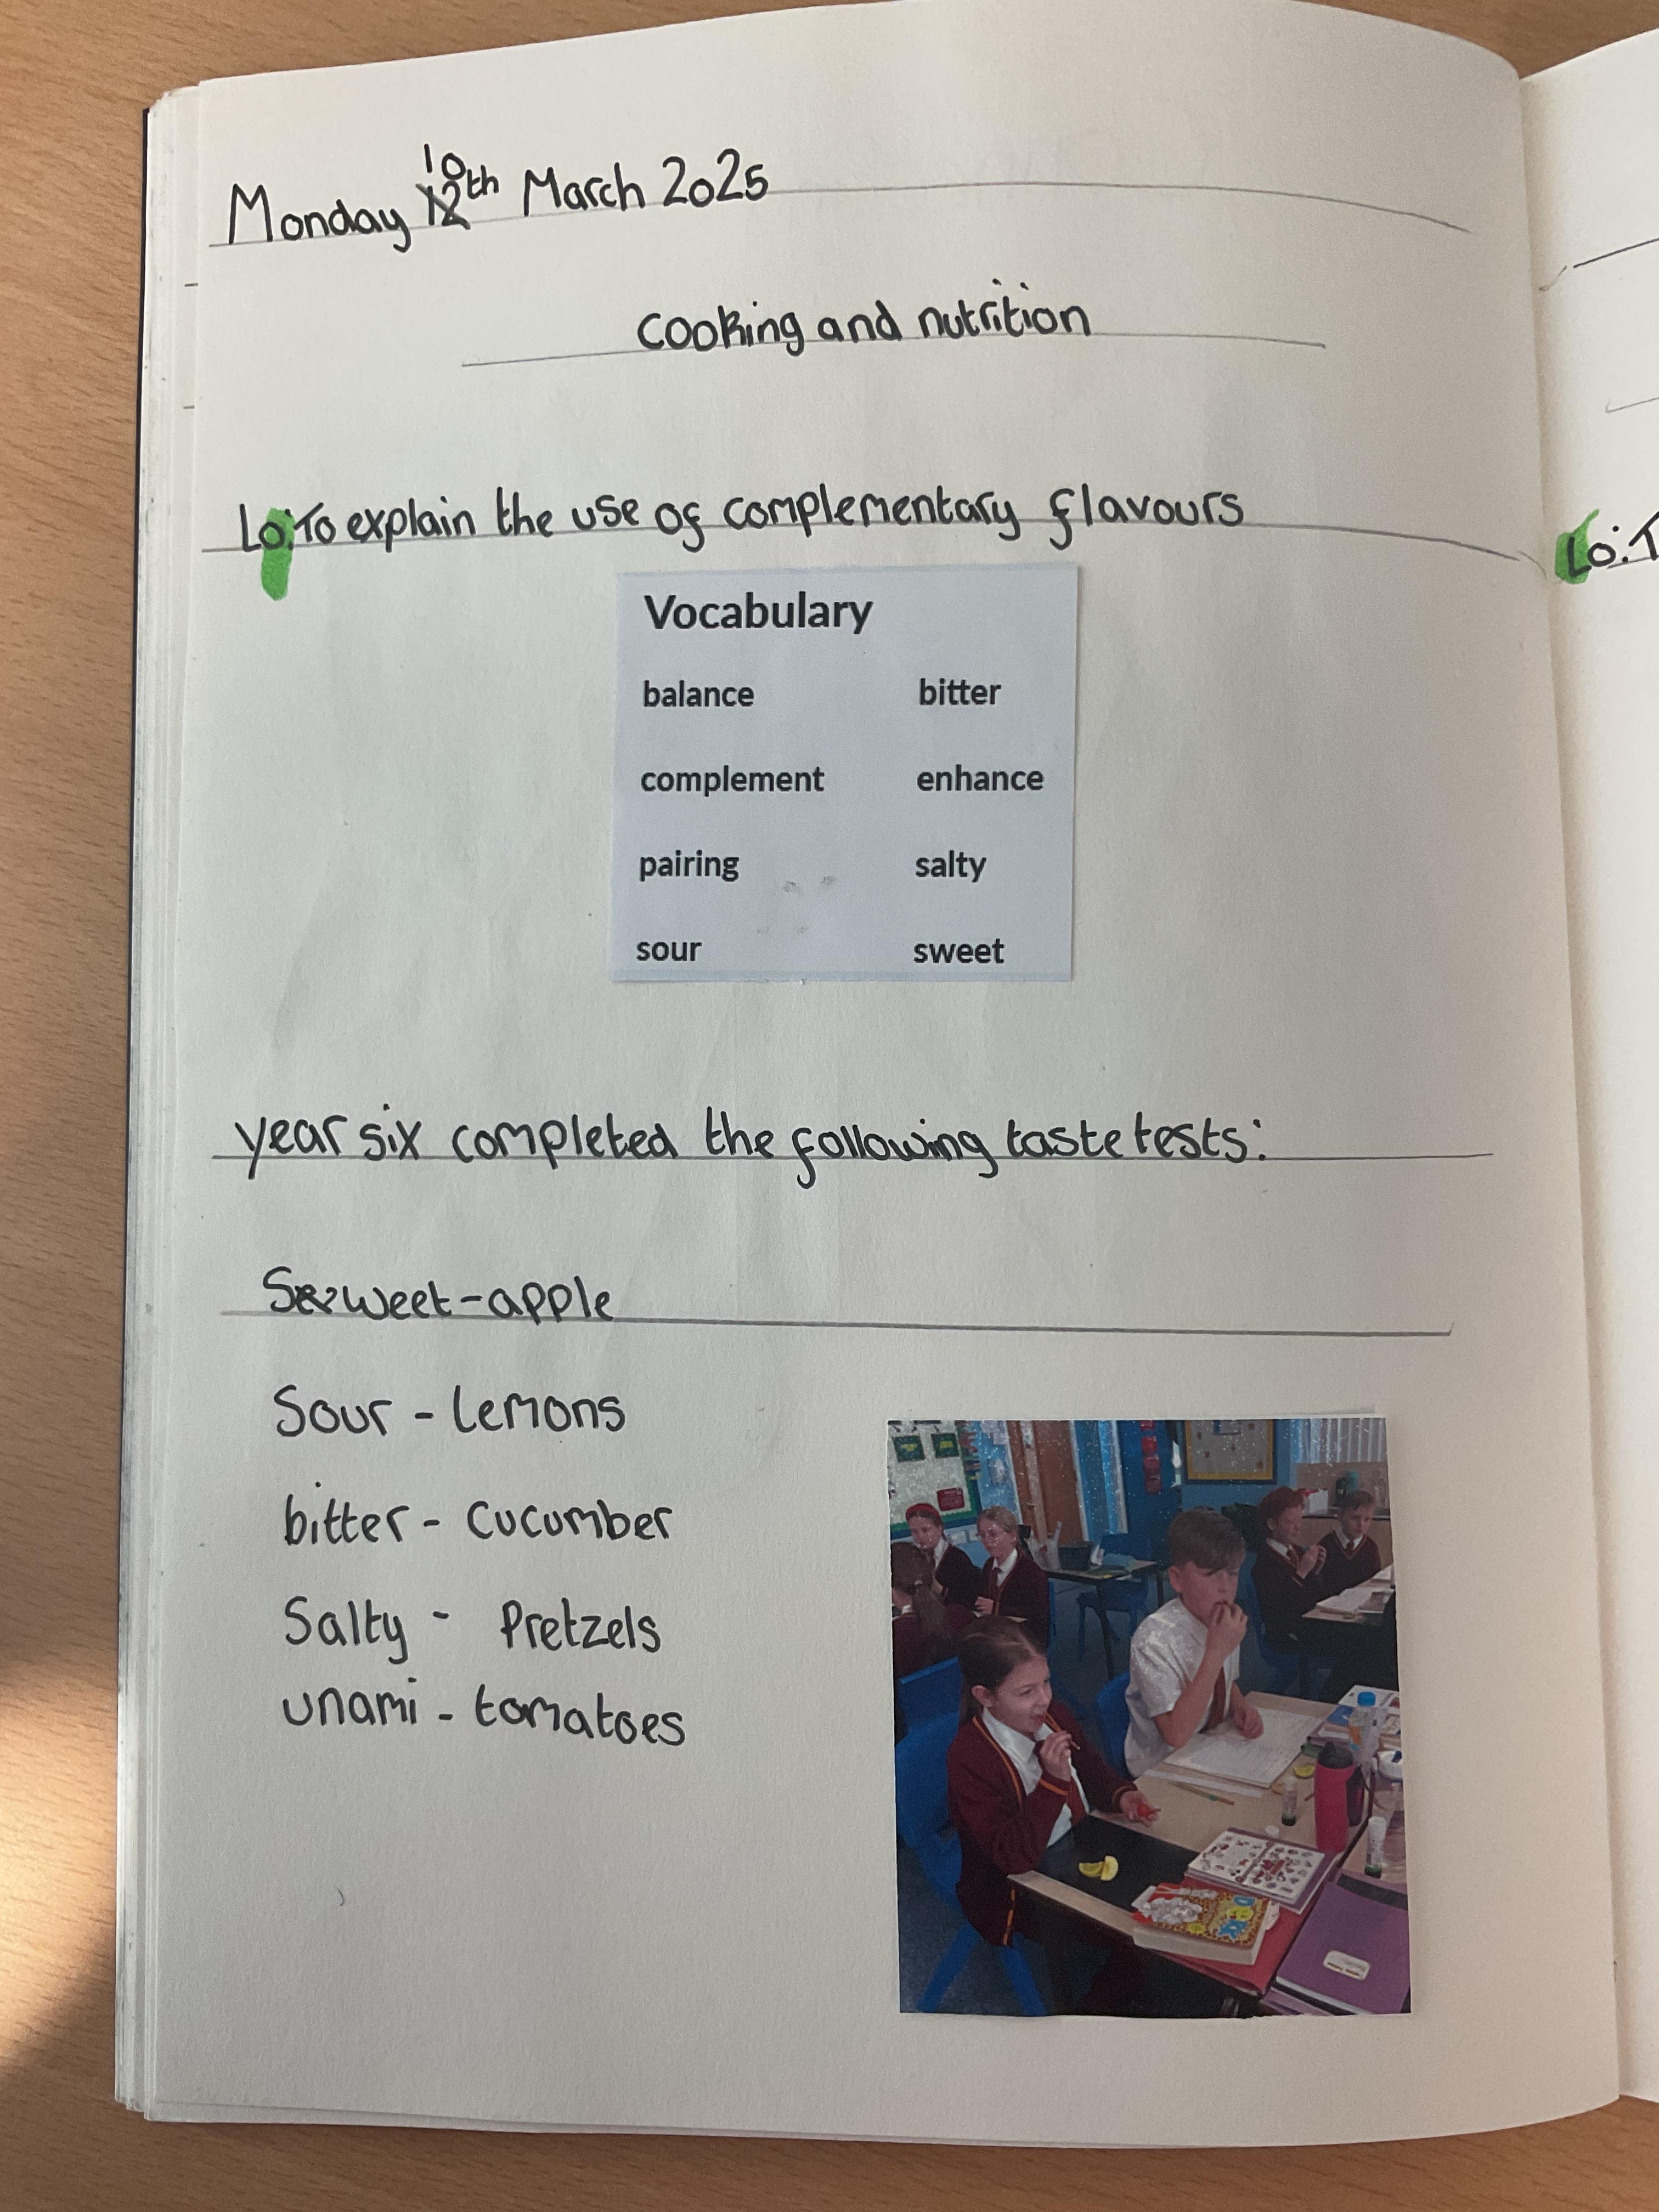 Monday 10th March 2025
cooking and nutrition
Lo: To explain the use of complementary flavours
Lo: T
Vocabulary
balance bitter
complement enhance
pairing salty
sour sweet
year six completed the following taste tests:
Sweet - apple
Sour - lemons
bitter - cucumber
Salty - Pretzels
unami - tomatoes